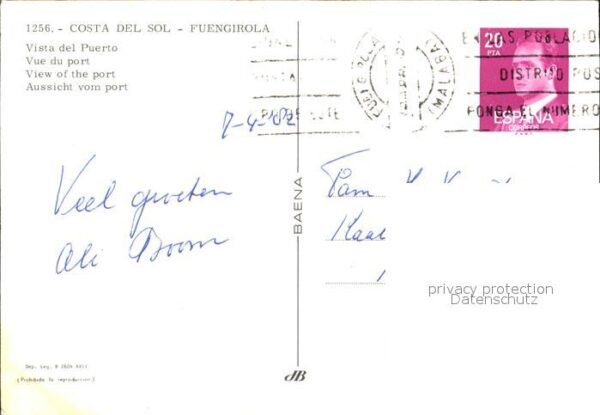 1256. - COSTA DEL SOL - FUENGIROLA
Vista del Puerto
Vue du port
View of the port
Aussicht vom port
7-4-82
Veel groeten
Ali Boom
BAENA
20
PTA
ESPAÑA
CORREOS
FUENGIROLA
(MALAGA)
POBLACIO
DISTRITO POS
PONGA EL NUMERO
Fam
privacy protection
Datenschutz
Dep. Leg. B
(Prohibida la reproducción)